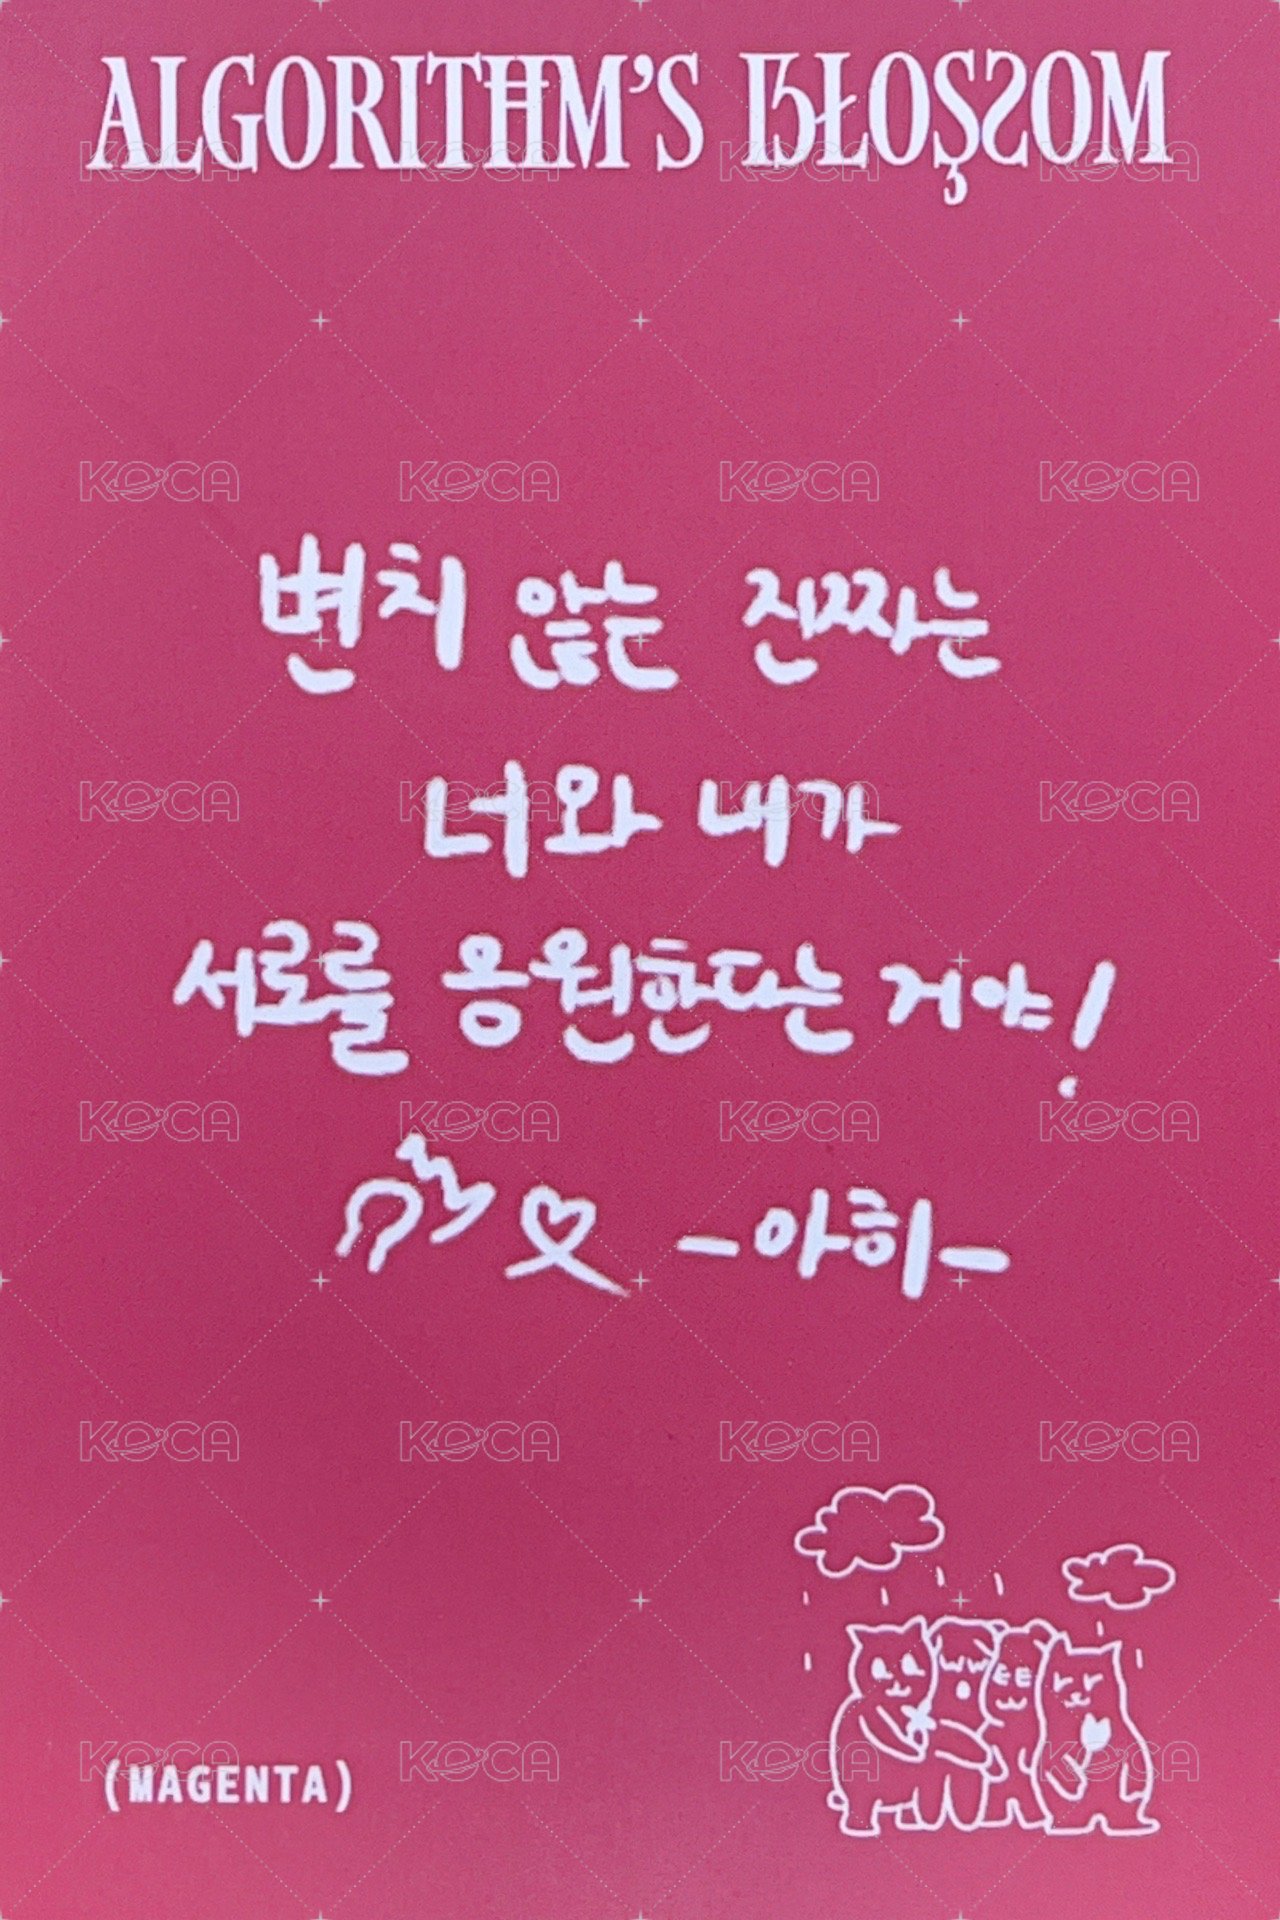 ALGORITHM'S BLOSSOM
변치 않는 진짜는
너와 내가
서로를 응원한다는 거야!
-아히-
(MAGENTA)
KOCA KOCA KOCA KOCA
KOCA KOCA KOCA KOCA
KOCA KOCA KOCA KOCA
KOCA KOCA KOCA KOCA
KOCA KOCA KOCA KOCA
KOCA KOCA KOCA KOCA